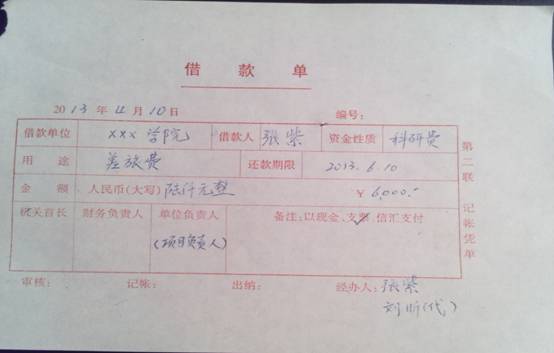 借款单
2013年4月10日 编号:
借款单位 xxx学院 借款人 张紫 资金性质 科研费
用途 差旅费 还款期限 2013.6.10
金额 人民币(大写) 陆仟元整 ¥6000.-
机关首长 财务负责人 单位负责人 (项目负责人) 备注:以现金、支票、信汇支付
审核: 记帐: 出纳: 经办人: 张紫
刘昕(代)
第二联 记帐凭单